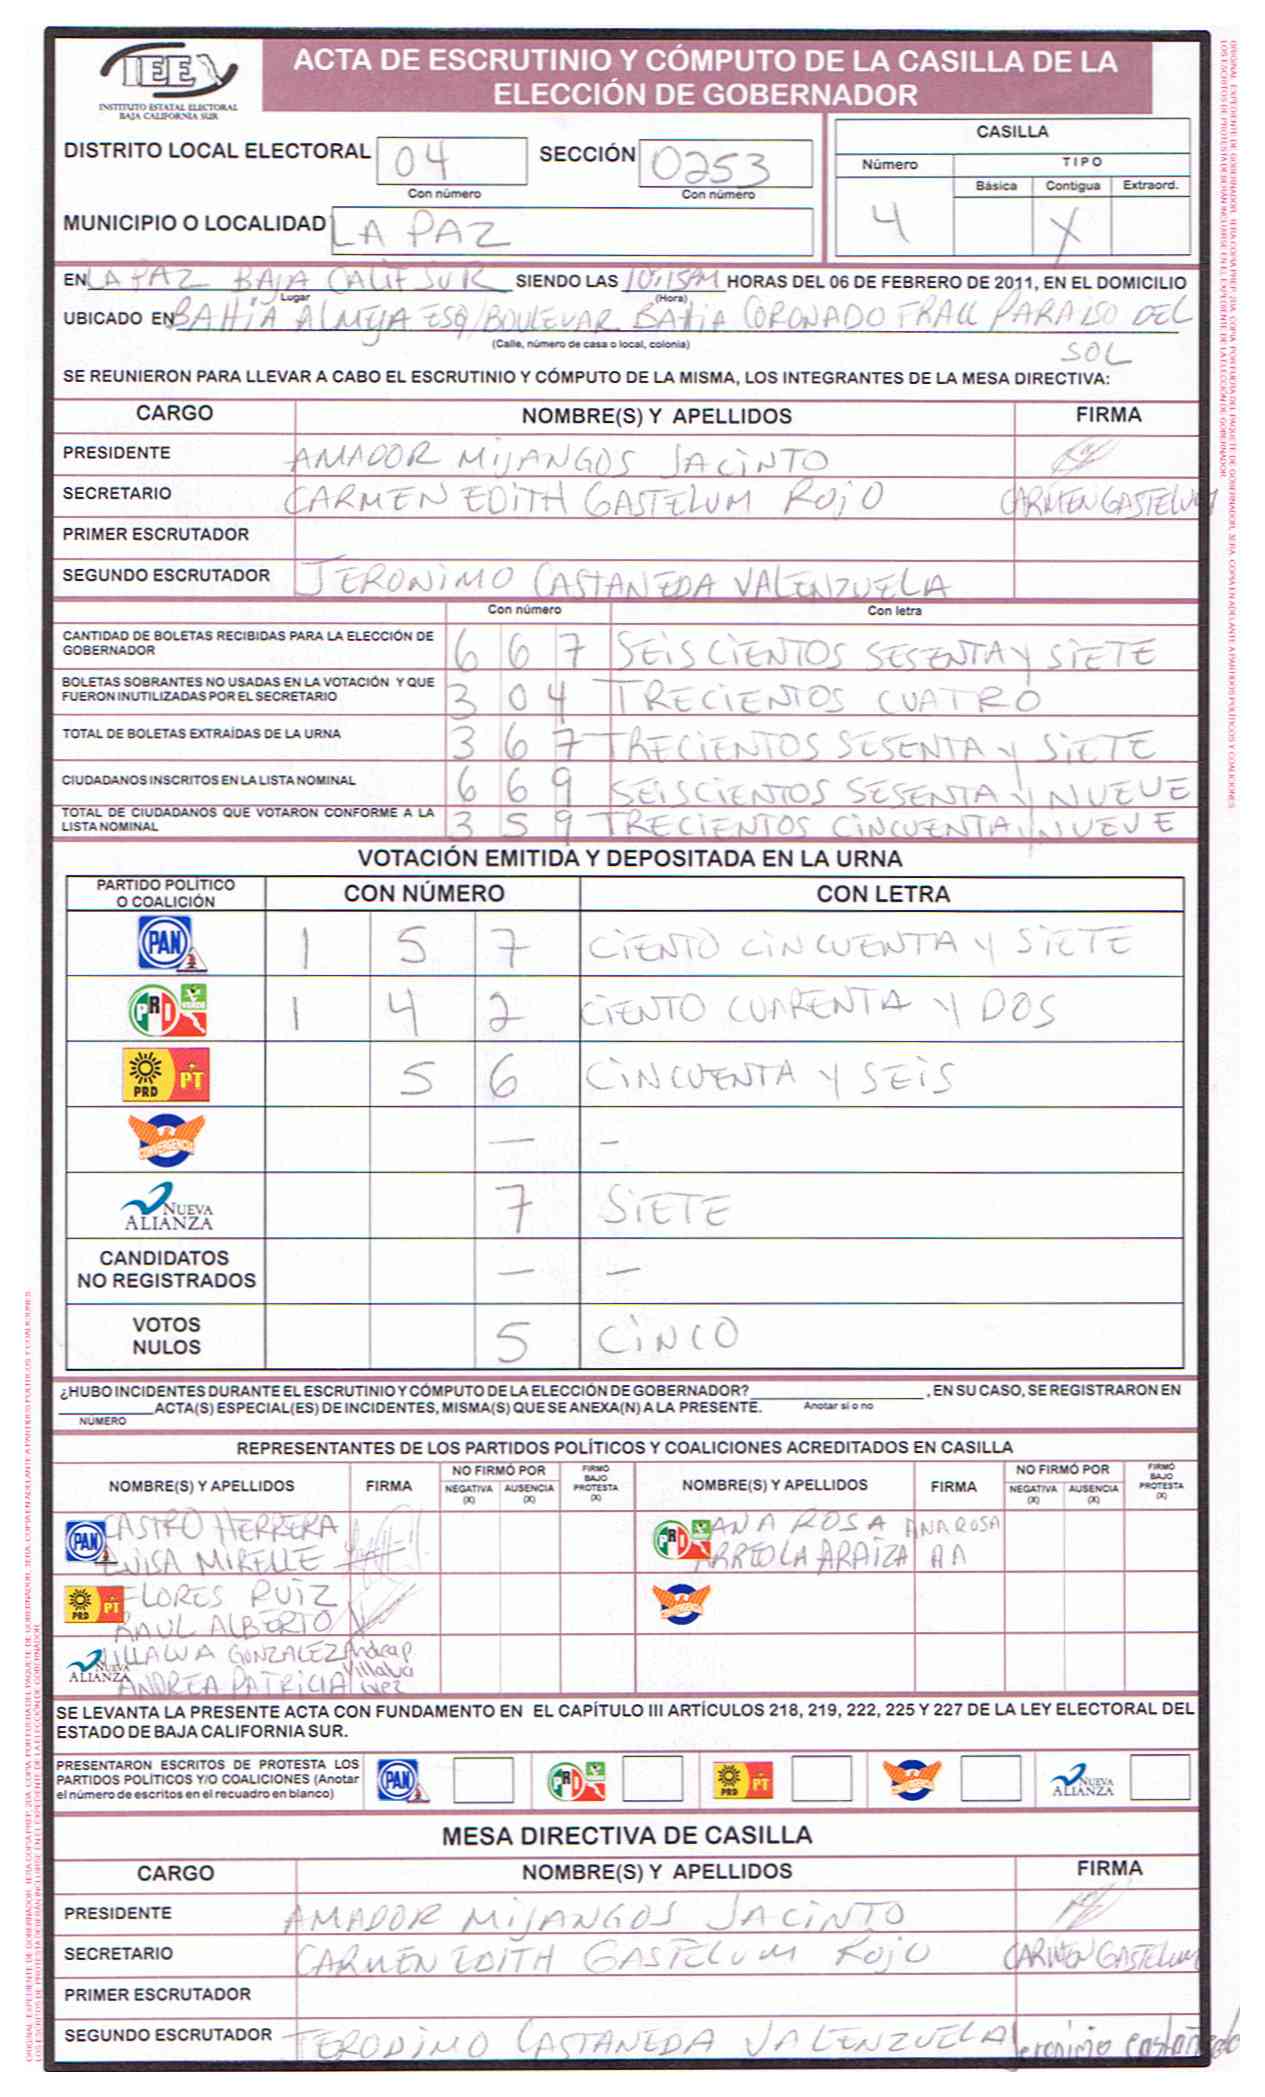 IEE
INSTITUTO ESTATAL ELECTORAL
BAJA CALIFORNIA SUR
ACTA DE ESCRUTINIO Y CÓMPUTO DE LA CASILLA DE LA
ELECCIÓN DE GOBERNADOR
DISTRITO LOCAL ELECTORAL 04 SECCIÓN 0253
Con número Con número
MUNICIPIO O LOCALIDAD LA PAZ
CASILLA
Número TIPO
Básica Contigua Extraord.
4 X
EN LA PAZ BAJA CALIF SUR SIENDO LAS 10:15PM HORAS DEL 06 DE FEBRERO DE 2011, EN EL DOMICILIO
Lugar (Hora)
UBICADO EN BAHÍA ALMEJA ESQ/BOULEVAR BAHIA CORONADO FRACC PARAISO DEL
(Calle, número de casa o local, colonia)
SOL
SE REUNIERON PARA LLEVAR A CABO EL ESCRUTINIO Y CÓMPUTO DE LA MISMA, LOS INTEGRANTES DE LA MESA DIRECTIVA:
CARGO NOMBRE(S) Y APELLIDOS FIRMA
PRESIDENTE AMADOR MIJANGOS JACINTO
SECRETARIO CARMEN EDITH GASTELUM ROJO CARMEN GASTELUM
PRIMER ESCRUTADOR
SEGUNDO ESCRUTADOR JERONIMO CASTANEDA VALENZUELA
Con número Con letra
CANTIDAD DE BOLETAS RECIBIDAS PARA LA ELECCIÓN DE
GOBERNADOR 6 6 7 SEISCIENTOS SESENTA Y SIETE
BOLETAS SOBRANTES NO USADAS EN LA VOTACIÓN Y QUE
FUERON INUTILIZADAS POR EL SECRETARIO 3 0 4 TRECIENTOS CUATRO
TOTAL DE BOLETAS EXTRAÍDAS DE LA URNA 3 6 7 TRECIENTOS SESENTA Y SIETE
CIUDADANOS INSCRITOS EN LA LISTA NOMINAL 6 6 9 SEISCIENTOS SESENTA Y NUEVE
TOTAL DE CIUDADANOS QUE VOTARON CONFORME A LA
LISTA NOMINAL 3 5 9 TRECIENTOS CINCUENTA Y NUEVE
VOTACIÓN EMITIDA Y DEPOSITADA EN LA URNA
PARTIDO POLÍTICO
O COALICIÓN CON NÚMERO CON LETRA
PAN 1 5 7 CIENTO CINCUENTA Y SIETE
PRI VERDE 1 4 2 CIENTO CUARENTA Y DOS
PRD PT 5 6 CINCUENTA Y SEIS
CONVERGENCIA — –
NUEVA
ALIANZA 7 SIETE
CANDIDATOS
NO REGISTRADOS — –
VOTOS
NULOS 5 CINCO
¿HUBO INCIDENTES DURANTE EL ESCRUTINIO Y CÓMPUTO DE LA ELECCIÓN DE GOBERNADOR? , EN SU CASO, SE REGISTRARON EN
ACTA(S) ESPECIAL(ES) DE INCIDENTES, MISMA(S) QUE SE ANEXA(N) A LA PRESENTE. Anotar si o no
NÚMERO
REPRESENTANTES DE LOS PARTIDOS POLÍTICOS Y COALICIONES ACREDITADOS EN CASILLA
NOMBRE(S) Y APELLIDOS FIRMA NO FIRMÓ POR NEGATIVA (X) AUSENCIA (X) FIRMÓ BAJO PROTESTA (X) NOMBRE(S) Y APELLIDOS FIRMA NO FIRMÓ POR NEGATIVA (X) AUSENCIA (X) FIRMÓ BAJO PROTESTA (X)
PAN CASTRO HERRERA PRI ANA ROSA ANA ROSA
LUISA MIRELLE ARREOLA ARAIZA AA
PRD PT FLORES RUIZ CONVERGENCIA
RAUL ALBERTO
NUEVA ALIANZA VILLALVA GONZALEZ Andrea P
ANDREA PATRICIA Villalva
SE LEVANTA LA PRESENTE ACTA CON FUNDAMENTO EN EL CAPÍTULO III ARTÍCULOS 218, 219, 222, 225 Y 227 DE LA LEY ELECTORAL DEL
ESTADO DE BAJA CALIFORNIA SUR.
PRESENTARON ESCRITOS DE PROTESTA LOS
PARTIDOS POLÍTICOS Y/O COALICIONES (Anotar
el número de escritos en el recuadro en blanco) PAN PRI PRD PT CONVERGENCIA NUEVA ALIANZA
MESA DIRECTIVA DE CASILLA
CARGO NOMBRE(S) Y APELLIDOS FIRMA
PRESIDENTE AMADOR MIJANGOS JACINTO
SECRETARIO CARMEN EDITH GASTELUM ROJO CARMEN GASTELUM
PRIMER ESCRUTADOR
SEGUNDO ESCRUTADOR JERODIMO CASTANEDA VALENZUELA Jeronimo castañeda